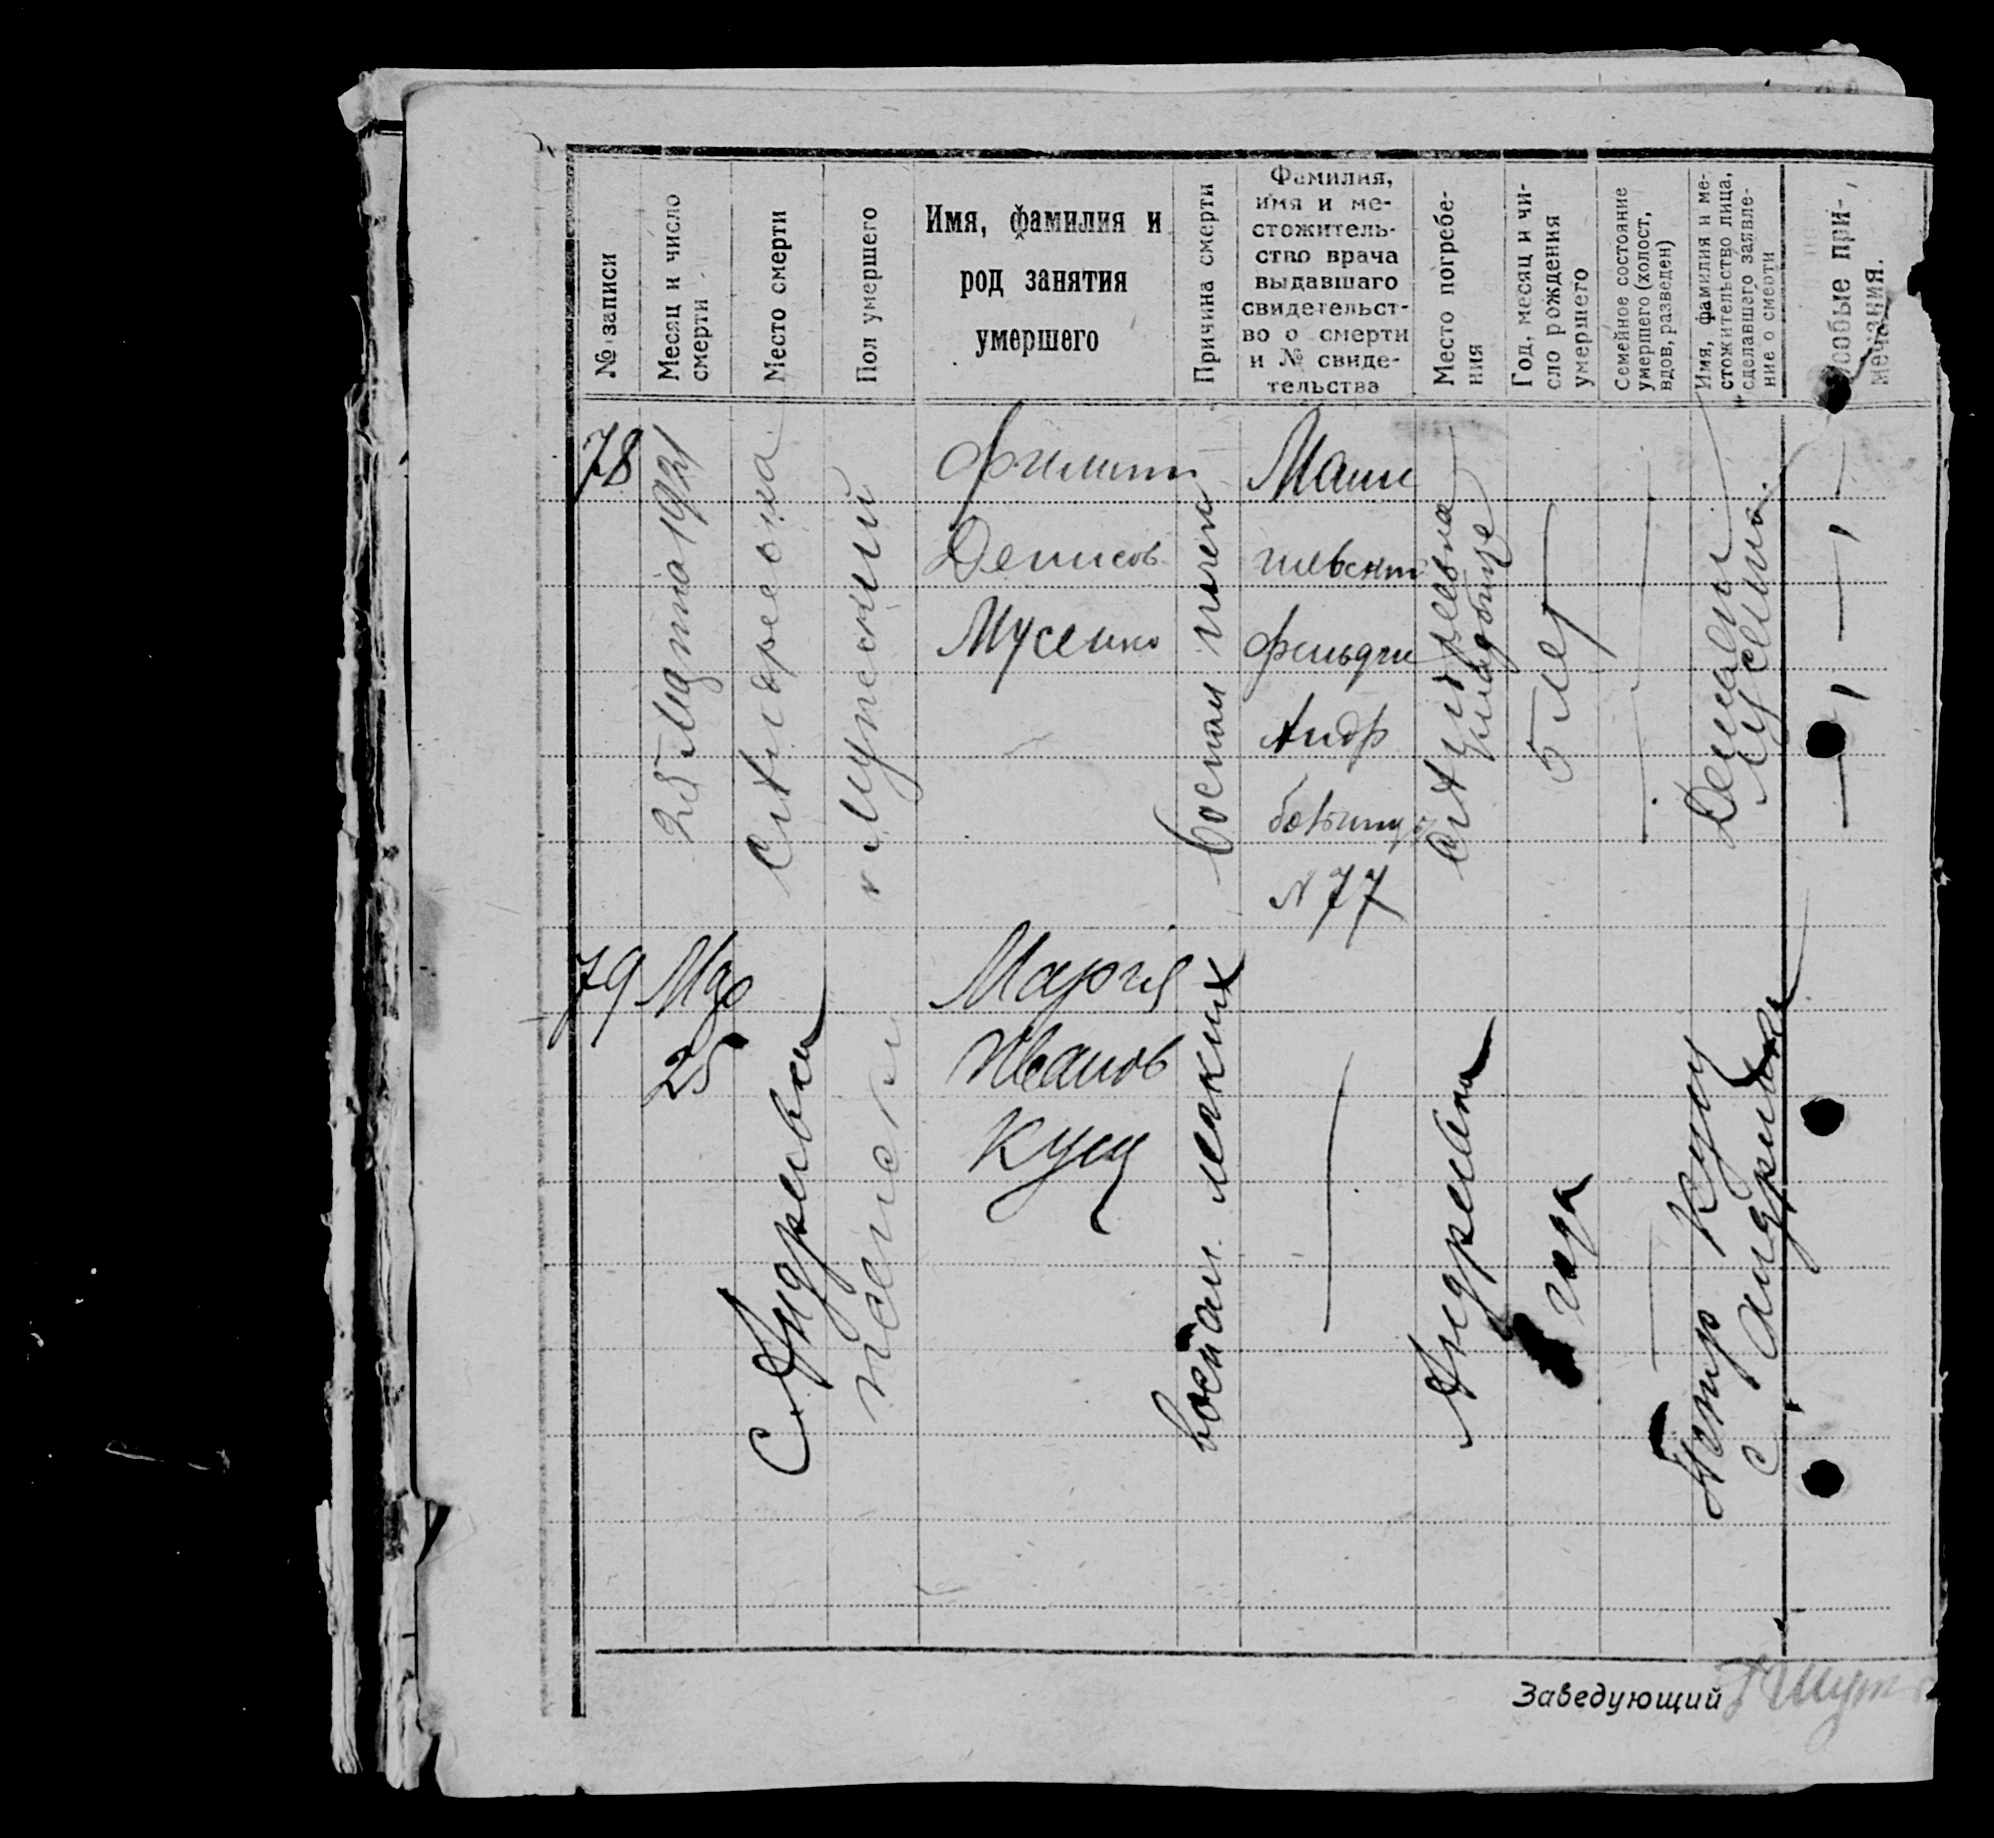 № записи
Месяц и число
смерти
Место смерти
Пол умершего
Имя, фамилия и
род занятия
умершего
Причина смерти
Фамилия,
имя и ме-
стожитель-
ство врача
выдавшаго
свидетельст-
во о смерти
и № свиде-
тельства
Место погребе-
ния
Год, месяц и чи-
сло рождения
умершего
Семейное состояние
умершего (холост,
вдов, разведен)
Имя, фамилия и ме-
стожительство лица,
сделавшего заявле-
ние о смерти
Особые при-
мечания.
78
25 Марта 1921
с Андреевка
Мужеский
Филипп
Денисов
Мусенко
Воспал
Фельдш
Андр
N 77
Андреевка
Кладбище
5 лет
Денис
Мусенко
79
Мар
25
с Андреевка
женски
Мария
Иванов
Кущ
воспал. легких
Андреевка
года
Петр Кущ
с Андреевки
Заведующий